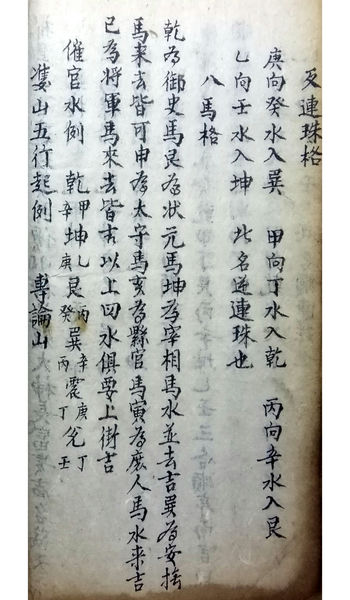 反連珠格
庚向癸水入巽 甲向丁水入乾 丙向辛水入艮
乙向壬水入坤 此名逆連珠也
八馬格
乾為御史馬艮為状元馬坤為宰相馬水並去吉巽為安撫
馬来去皆可申為太守馬亥為縣官馬寅為庶人馬水来吉
巳為將軍馬來去皆吉以上四水俱要上御吉
催官水例 乾甲辛坤乙庚艮丙癸巽辛丙震庚丁兌丁壬
雙山五行起例 專論山